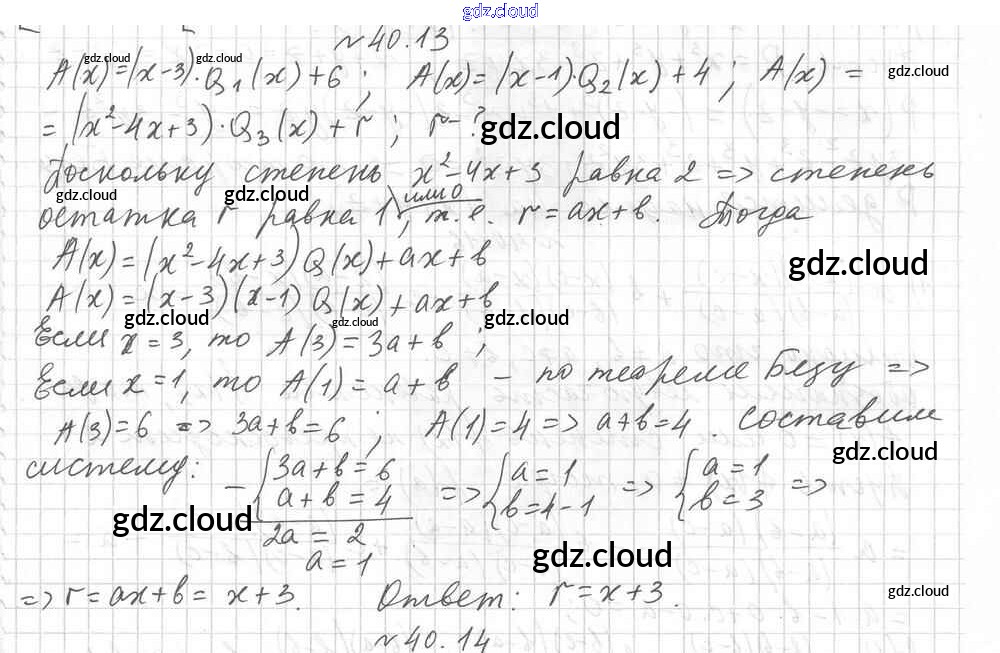 gdz.cloud
№40.13
A(x)=(x-3)·Q₁(x)+6; A(x)=(x-1)·Q₂(x)+4; A(x)=
=(x²-4x+3)·Q₃(x)+r; r-?
Поскольку степень x²-4x+3 равна 2 => степень
остатка r равна 1 или 0, т.е. r=ax+b. Тогда
A(x)=(x²-4x+3)Q(x)+ax+b
A(x)=(x-3)(x-1)Q(x)+ax+b
Если x=3, то A(3)=3a+b;
Если x=1, то A(1)=a+b - по теореме Безу =>
A(3)=6 => 3a+b=6; A(1)=4 => a+b=4. Составим
систему: -{3a+b=6 a+b=4 => {a=1 b=4-1 => {a=1 b=3 =>
2a=2
a=1
=> r=ax+b=x+3. Ответ: r=x+3.
№40.14
gdz.cloud
gdz.cloud
gdz.cloud
gdz.cloud
gdz.cloud
gdz.cloud
gdz.cloud
gdz.cloud
gdz.cloud
gdz.cloud
gdz.cloud
gdz.cloud
gdz.cloud
gdz.cloud